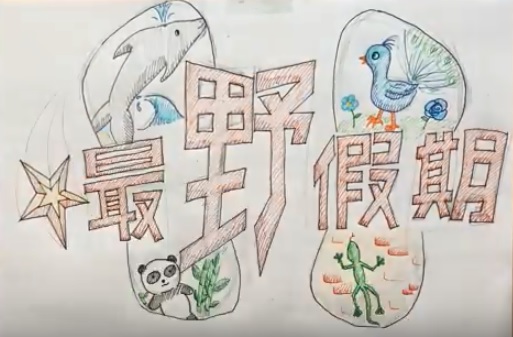 最野假期